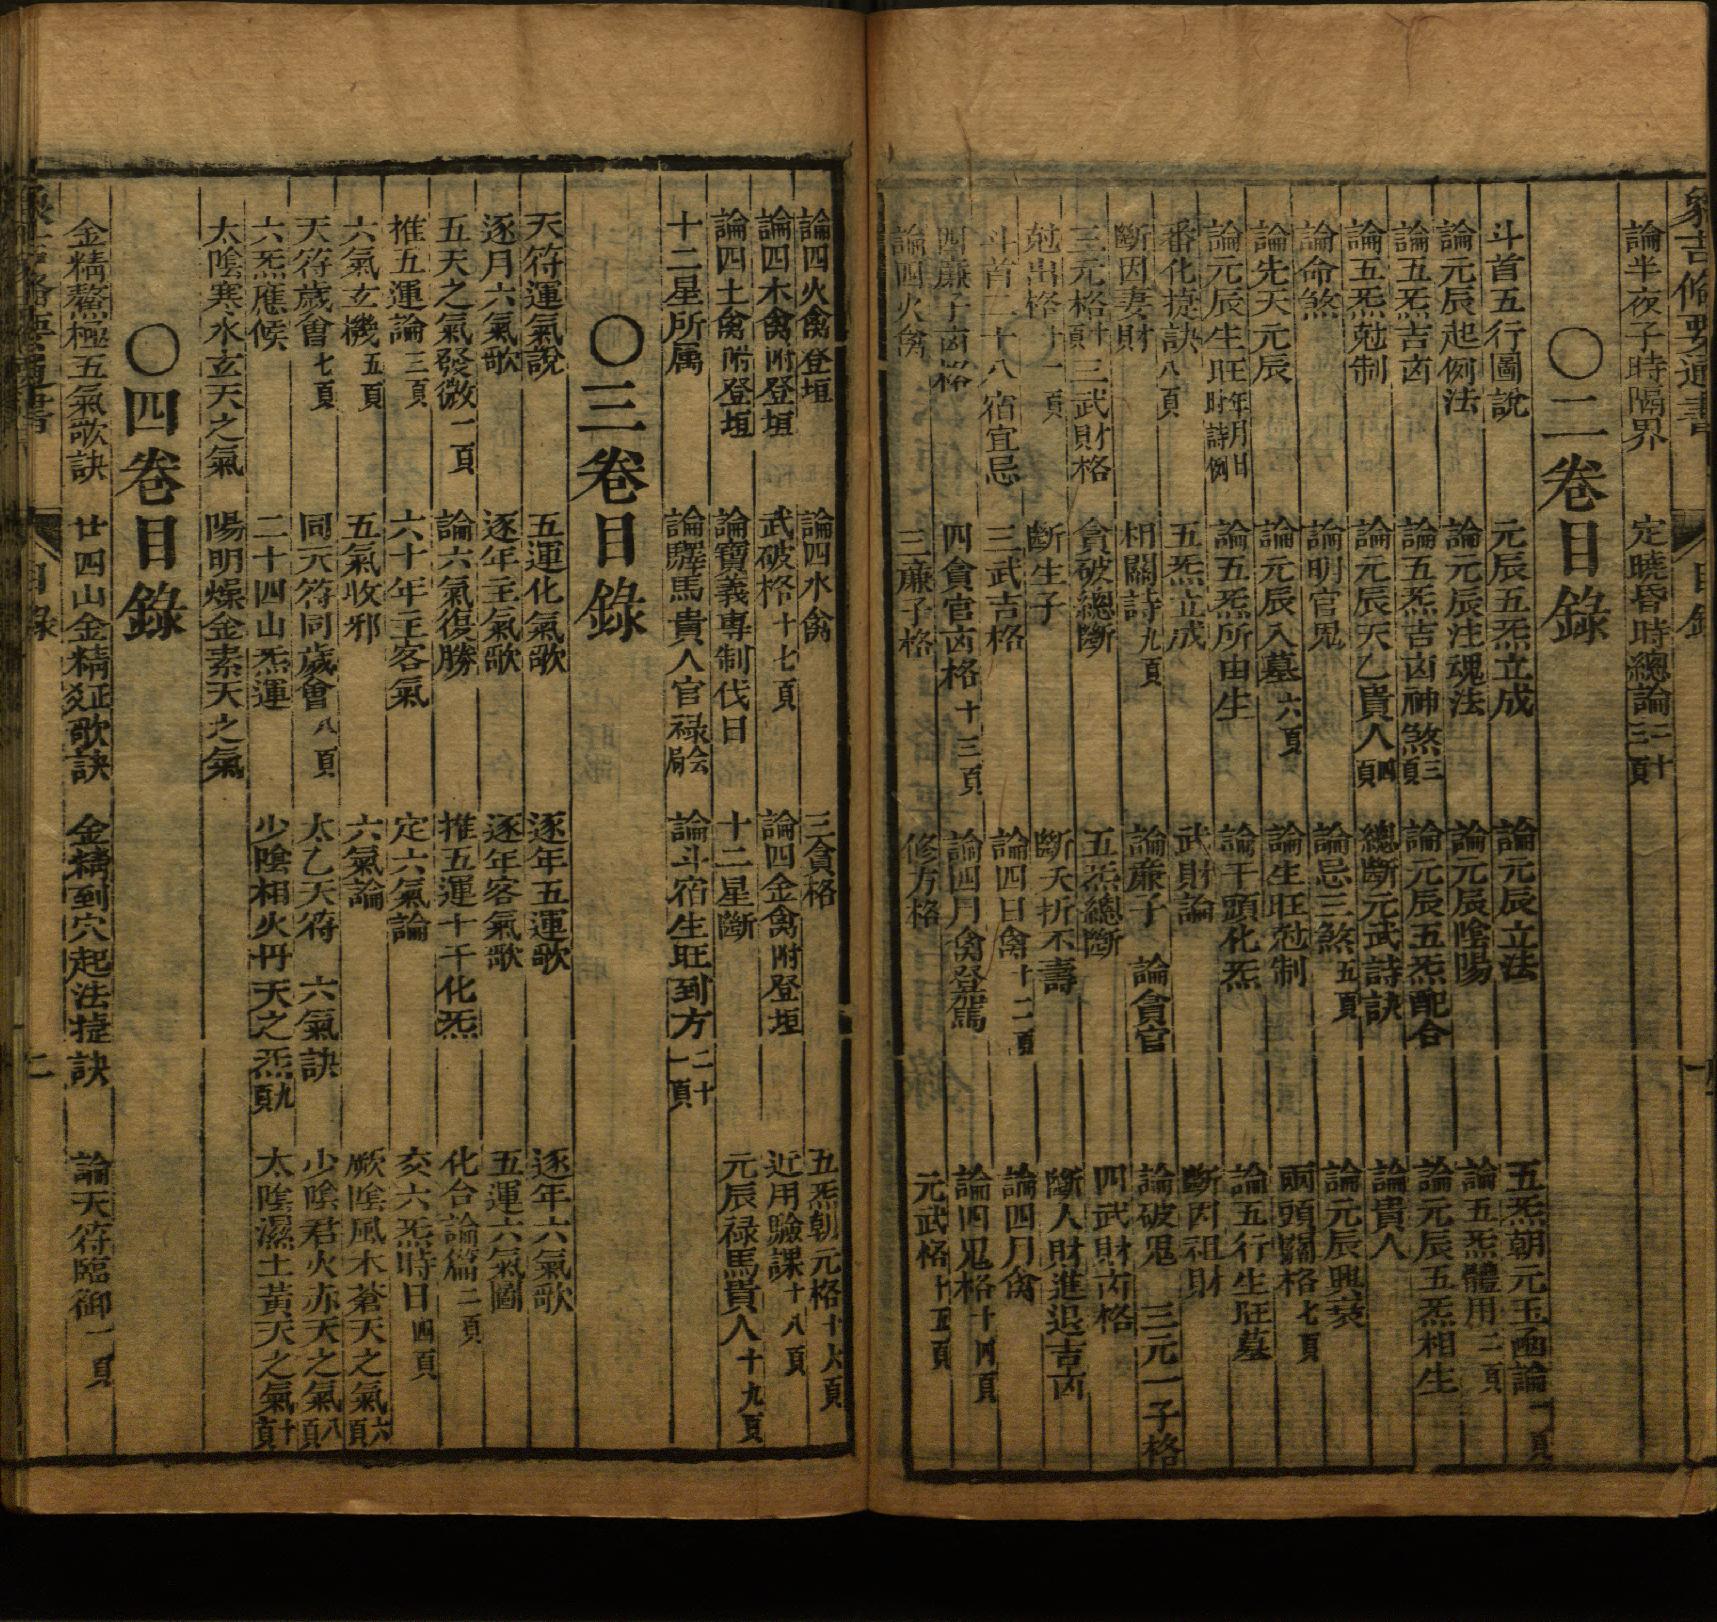 象吉備要通書 目錄 一
論半夜子時隔界 定曉昏時總論三十二頁
〇二卷目錄
斗首五行圖說 元辰五炁立成 論元辰立法 五炁朝元玉函論一頁
論元辰起例法 論元辰注魂法 論元辰陰陽 論五炁體用二頁
論五炁吉凶 論五炁吉凶神煞三頁 論元辰五炁配合 論元辰五炁相生
論五炁尅制 論元辰天乙貴人四頁 總斷元武詩訣 論貴人
論命煞 論明官鬼 論忌三煞五頁 論元辰興衰
論先天元辰 論元辰入墓六頁 論生旺尅制 兩頭關格七頁
論元辰生旺年月日時詩例 論五炁所由生 論干頭化炁 論五行生旺墓
番化捷訣八頁 五炁立成 武財論 斷因祖財
斷因妻財 相關詩九頁 論廉子 論貪官 論破鬼 三元一子格
三元格附三武財格 貪破總斷 五炁總斷 四武財凶格
尅出格十一頁 斷生子 斷夭折不壽 斷人財進退吉凶
斗首二十八宿宜忌 三武吉格 論四日禽十二頁 論四月禽
四廉子凶格 四貪官凶格十三頁 論四月禽登駕 論四鬼格十四頁
論四火禽 三廉子格 修方格 元武格十五頁
論四火禽登垣 論四水禽 三貪格 五炁朝元格十六頁
論四木禽附登垣 武破格十七頁 論四金禽附登垣 近用驗課十八頁
論四土禽附登垣 論寶義專制伐日 十二星斷 元辰祿馬貴人十九頁
十二星所属 論驛馬貴人官祿 論斗宿生旺到方二十一頁
〇三卷目錄
天符運氣說 五運化氣歌 逐年五運歌 逐年六氣歌
逐月六氣歌 逐年主氣歌 逐年客氣歌 五運六氣圖
五天之氣發微一頁 論六氣復勝 推五運十干化炁 化合論篇二頁
推五運論三頁 六十年主客氣 定六氣論 交六炁時日四頁
六氣玄機五頁 五氣收邪 六氣論 厥陰風木蒼天之氣六頁
天符歲會七頁 同天符同歲會八頁 太乙天符 六氣訣 少陰君火赤天之氣八頁
六炁應候 二十四山炁運 少陰相火丹天之炁九頁 太陰濕土黃天之氣十頁
太陰寒水玄天之氣 陽明燥金素天之氣
〇四卷目錄
金精鰲極五氣歌訣 廿四山金精歌訣 金精到穴起法捷訣 論天符臨御一頁
目錄 二